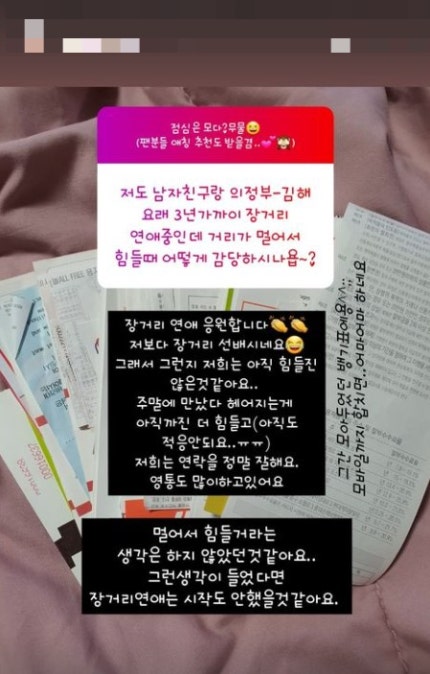 점심은 모다?무물😆
(팬분들 애칭 추천도 받을겸..💕👧)
저도 남자친구랑 의정부-김해
요래 3년가까이 장거리
연애중인데 거리가 멀어서
힘들때 어떻게 감당하시나욥~?
장거리 연애 응원합니다👏👏
저보다 장거리 선배시네요😅
그래서 그런지 저희는 아직 힘들진
않은것같아요..
주말에 만났다 헤어지는게
아직까진 더 힘들고(아직도
적응안되요..ㅠㅠ)
저희는 연락을 정말 잘해요.
영통도 많이하고있어요
멀어서 힘들거라는
생각은 하지 않았던것같아요..
그런생각이 들었다면
장거리연애는 시작도 안했을것같아요.
그간 모아두었던 뱅기표에요^^;;
모바일까지 합치면..어마어마 하네요